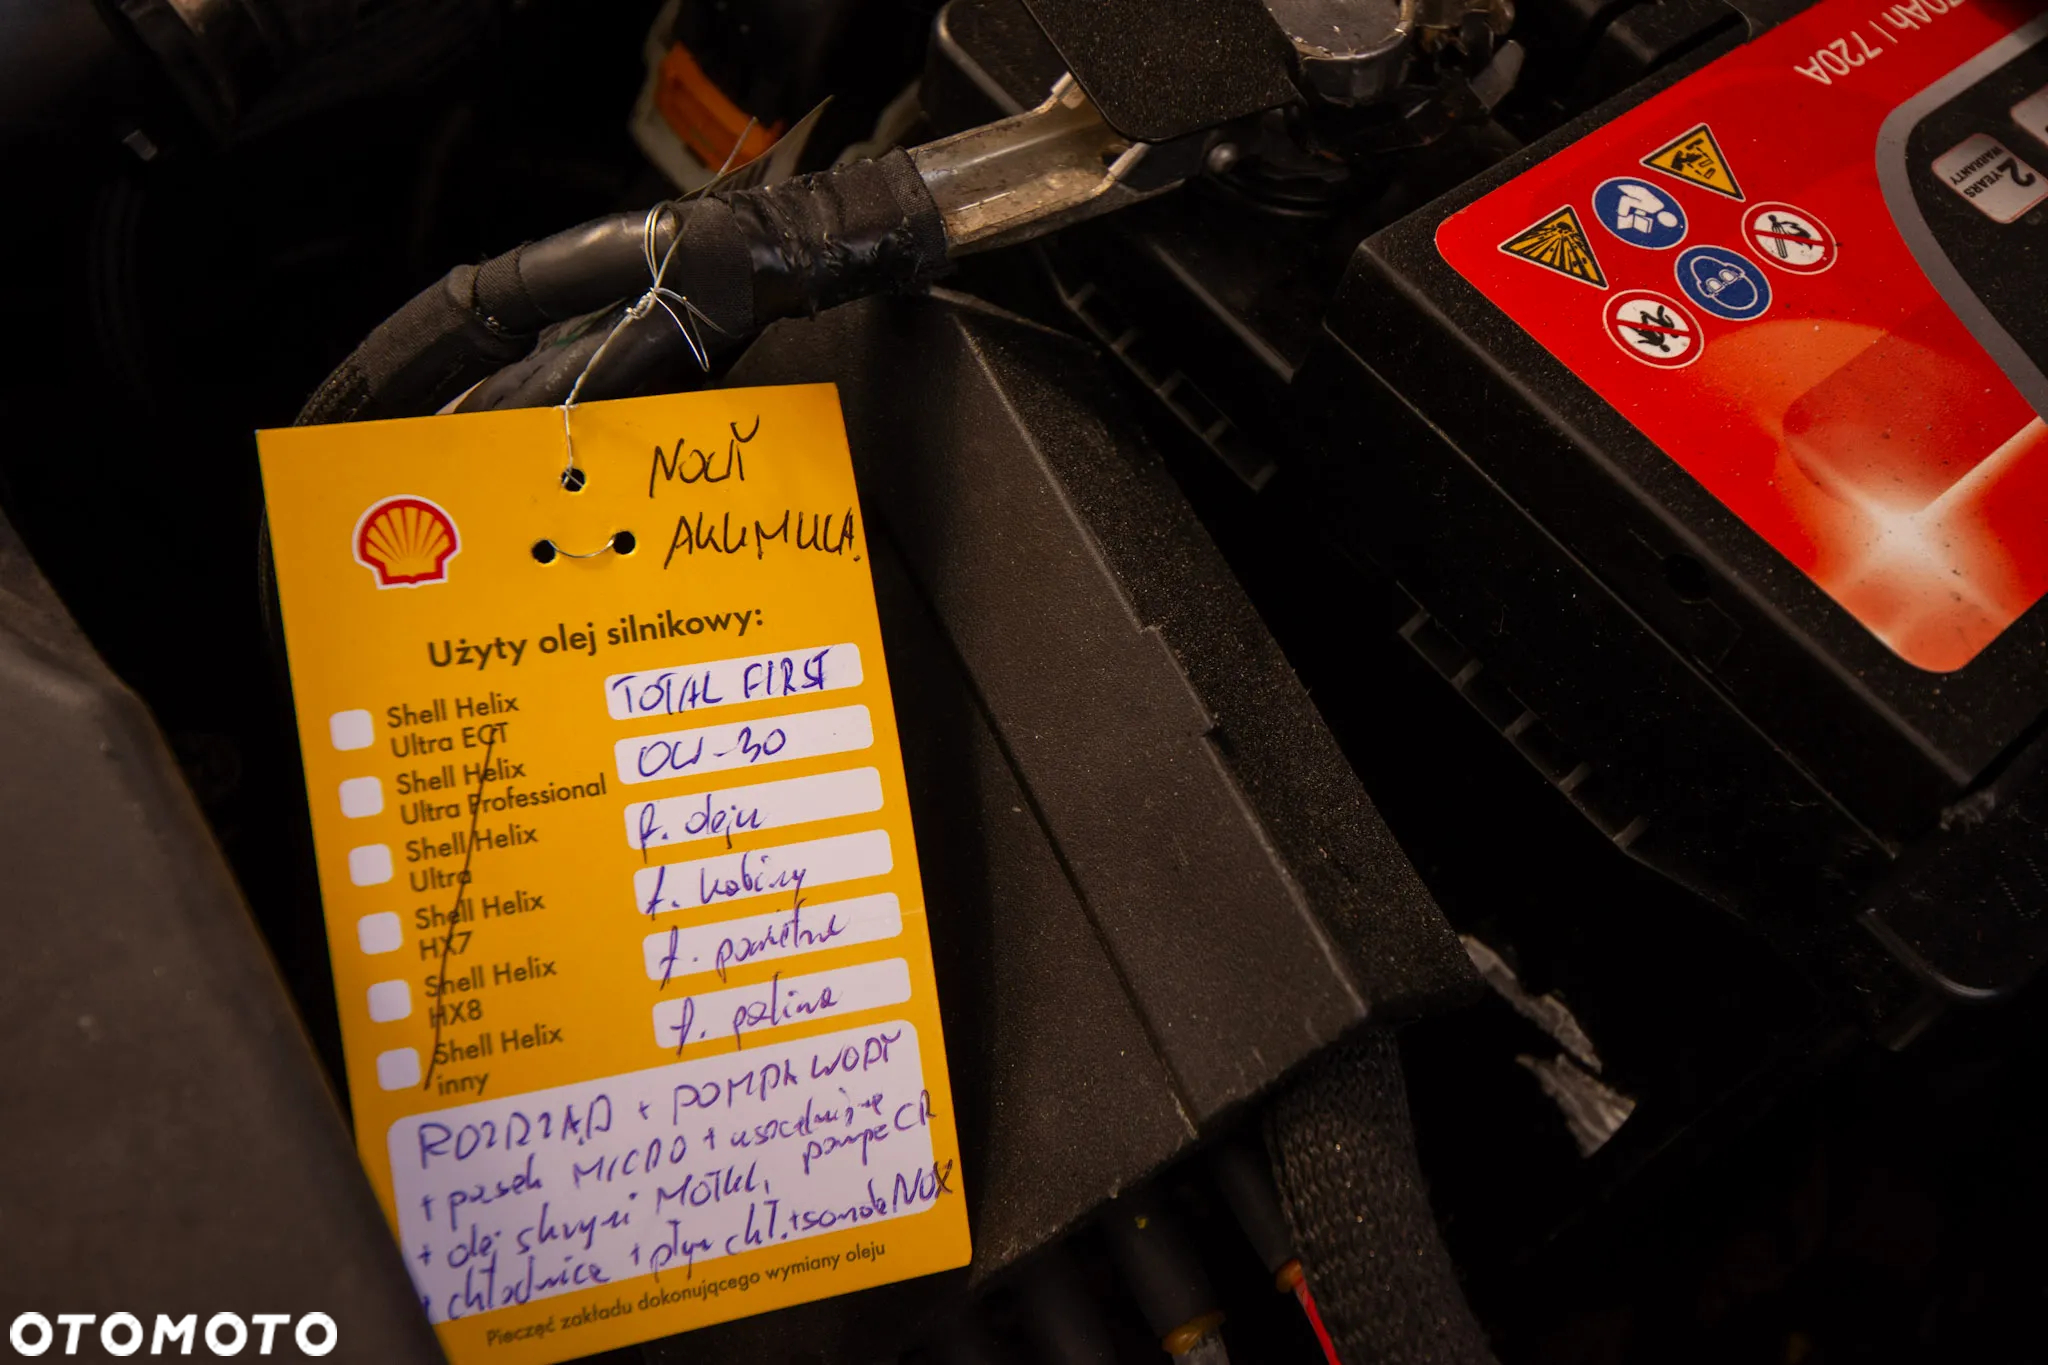 70Ah | 720A
2 YEARS
WARRANTY
NOWY
AKUMULA.
Użyty olej silnikowy:
Shell Helix
Ultra ECT
Shell Helix
Ultra Professional
Shell Helix
Ultra
Shell Helix
HX7
Shell Helix
HX8
Shell Helix
inny
TOTAL FIRST
0W-30
f. oleju
f. kabiny
f. powietrza
f. paliwa
ROZRZĄD + POMPA WODY
+ pasek MICRO + uszczelnienie
+ olej skrzyni MOTUL, pompa CR
+ chłodnica + płyn chł. + sonda NOX
Pieczęć zakładu dokonującego wymiany oleju
OTOMOTO